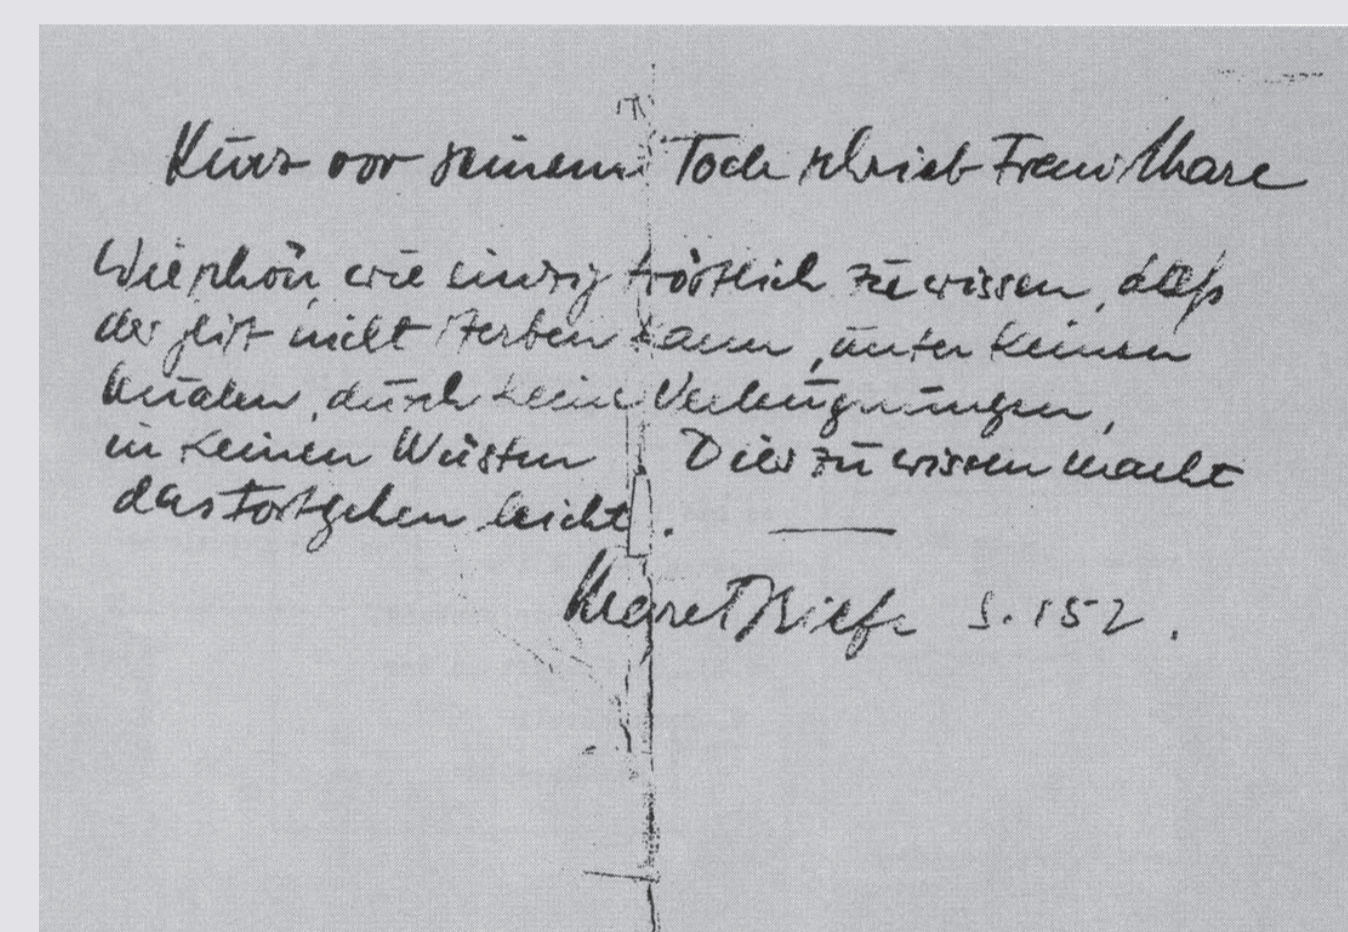 Kurz vor seinem Tode schrieb Franz Marc
Wie schön, wie einzig tröstlich zu wissen, daß
der Geist nicht sterben kann, unter keinen
Qualen, durch keine Verleugnungen,
in keinen Wüsten. Dies zu wissen macht
das Fortgehen leicht.
Marc Briefe S. 152.